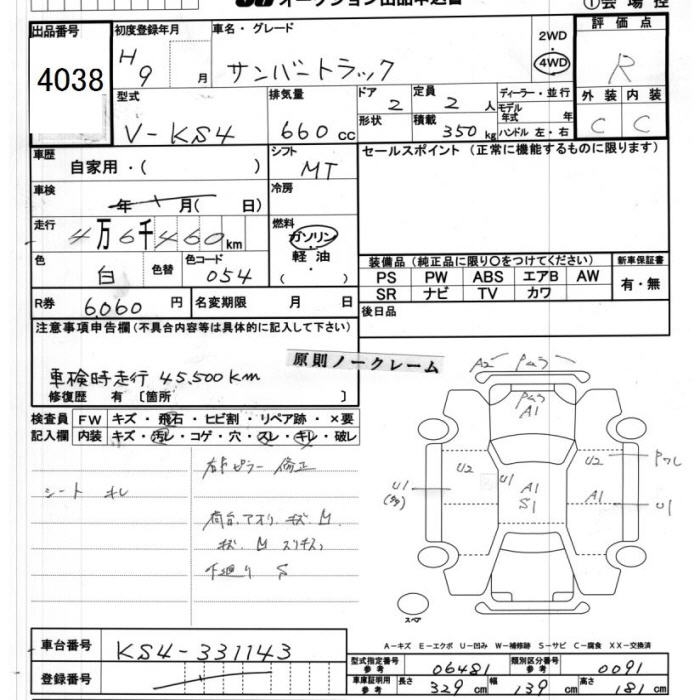 オークション出品申込書
①会場控
出品番号
4038
初度登録年月
H9 月
車名・グレード
サンバートラック
2WD
4WD
評価点
R
型式
V-KS4
排気量
660 cc
ドア 2
定員 2 人
ディーラー・並行
形状
積載 350 kg
モデル年式 年
ハンドル 左・右
外装 内装
C C
車歴
自家用・( )
シフト
MT
セールスポイント (正常に機能するものに限ります)
車検
年 月( 日)
冷房
走行
4万6千460km
燃料
ガソリン
軽油
( ・ )
色
白
色替
色コード
054
装備品 (純正品に限り○をつけてください)
新車保証書
PS PW ABS エアB AW
有・無
SR ナビ TV カワ
R券 6,060 円
名変期限 月 日
後日品
注意事項申告欄(不具合内容等は具体的に記入して下さい)
原則ノークレーム
車検時走行 45,500km
修復歴 有〔箇所 〕
検査員 FW キズ・飛石・ヒビ割・リペア跡・×要
記入欄 内装 キズ・汚レ・コゲ・穴・スレ・キレ・破レ
右Fピラー 修正
シート キレ
荷台、アオリ、キズ M.
キズ M
下廻り S
A2
A1
U2 U1 U2
U1
(多)
A1
S1
A1 U1
スペア
A-キズ E-エクボ U-凹み W-補修跡 S-サビ C-腐食 XX-交換済
車台番号 KS4-331143
型式指定番号 参考 06481
類別区分番号 参考 0091
登録番号
車庫証明用 参考 長さ 329 cm 幅 139 cm 高さ 181 cm